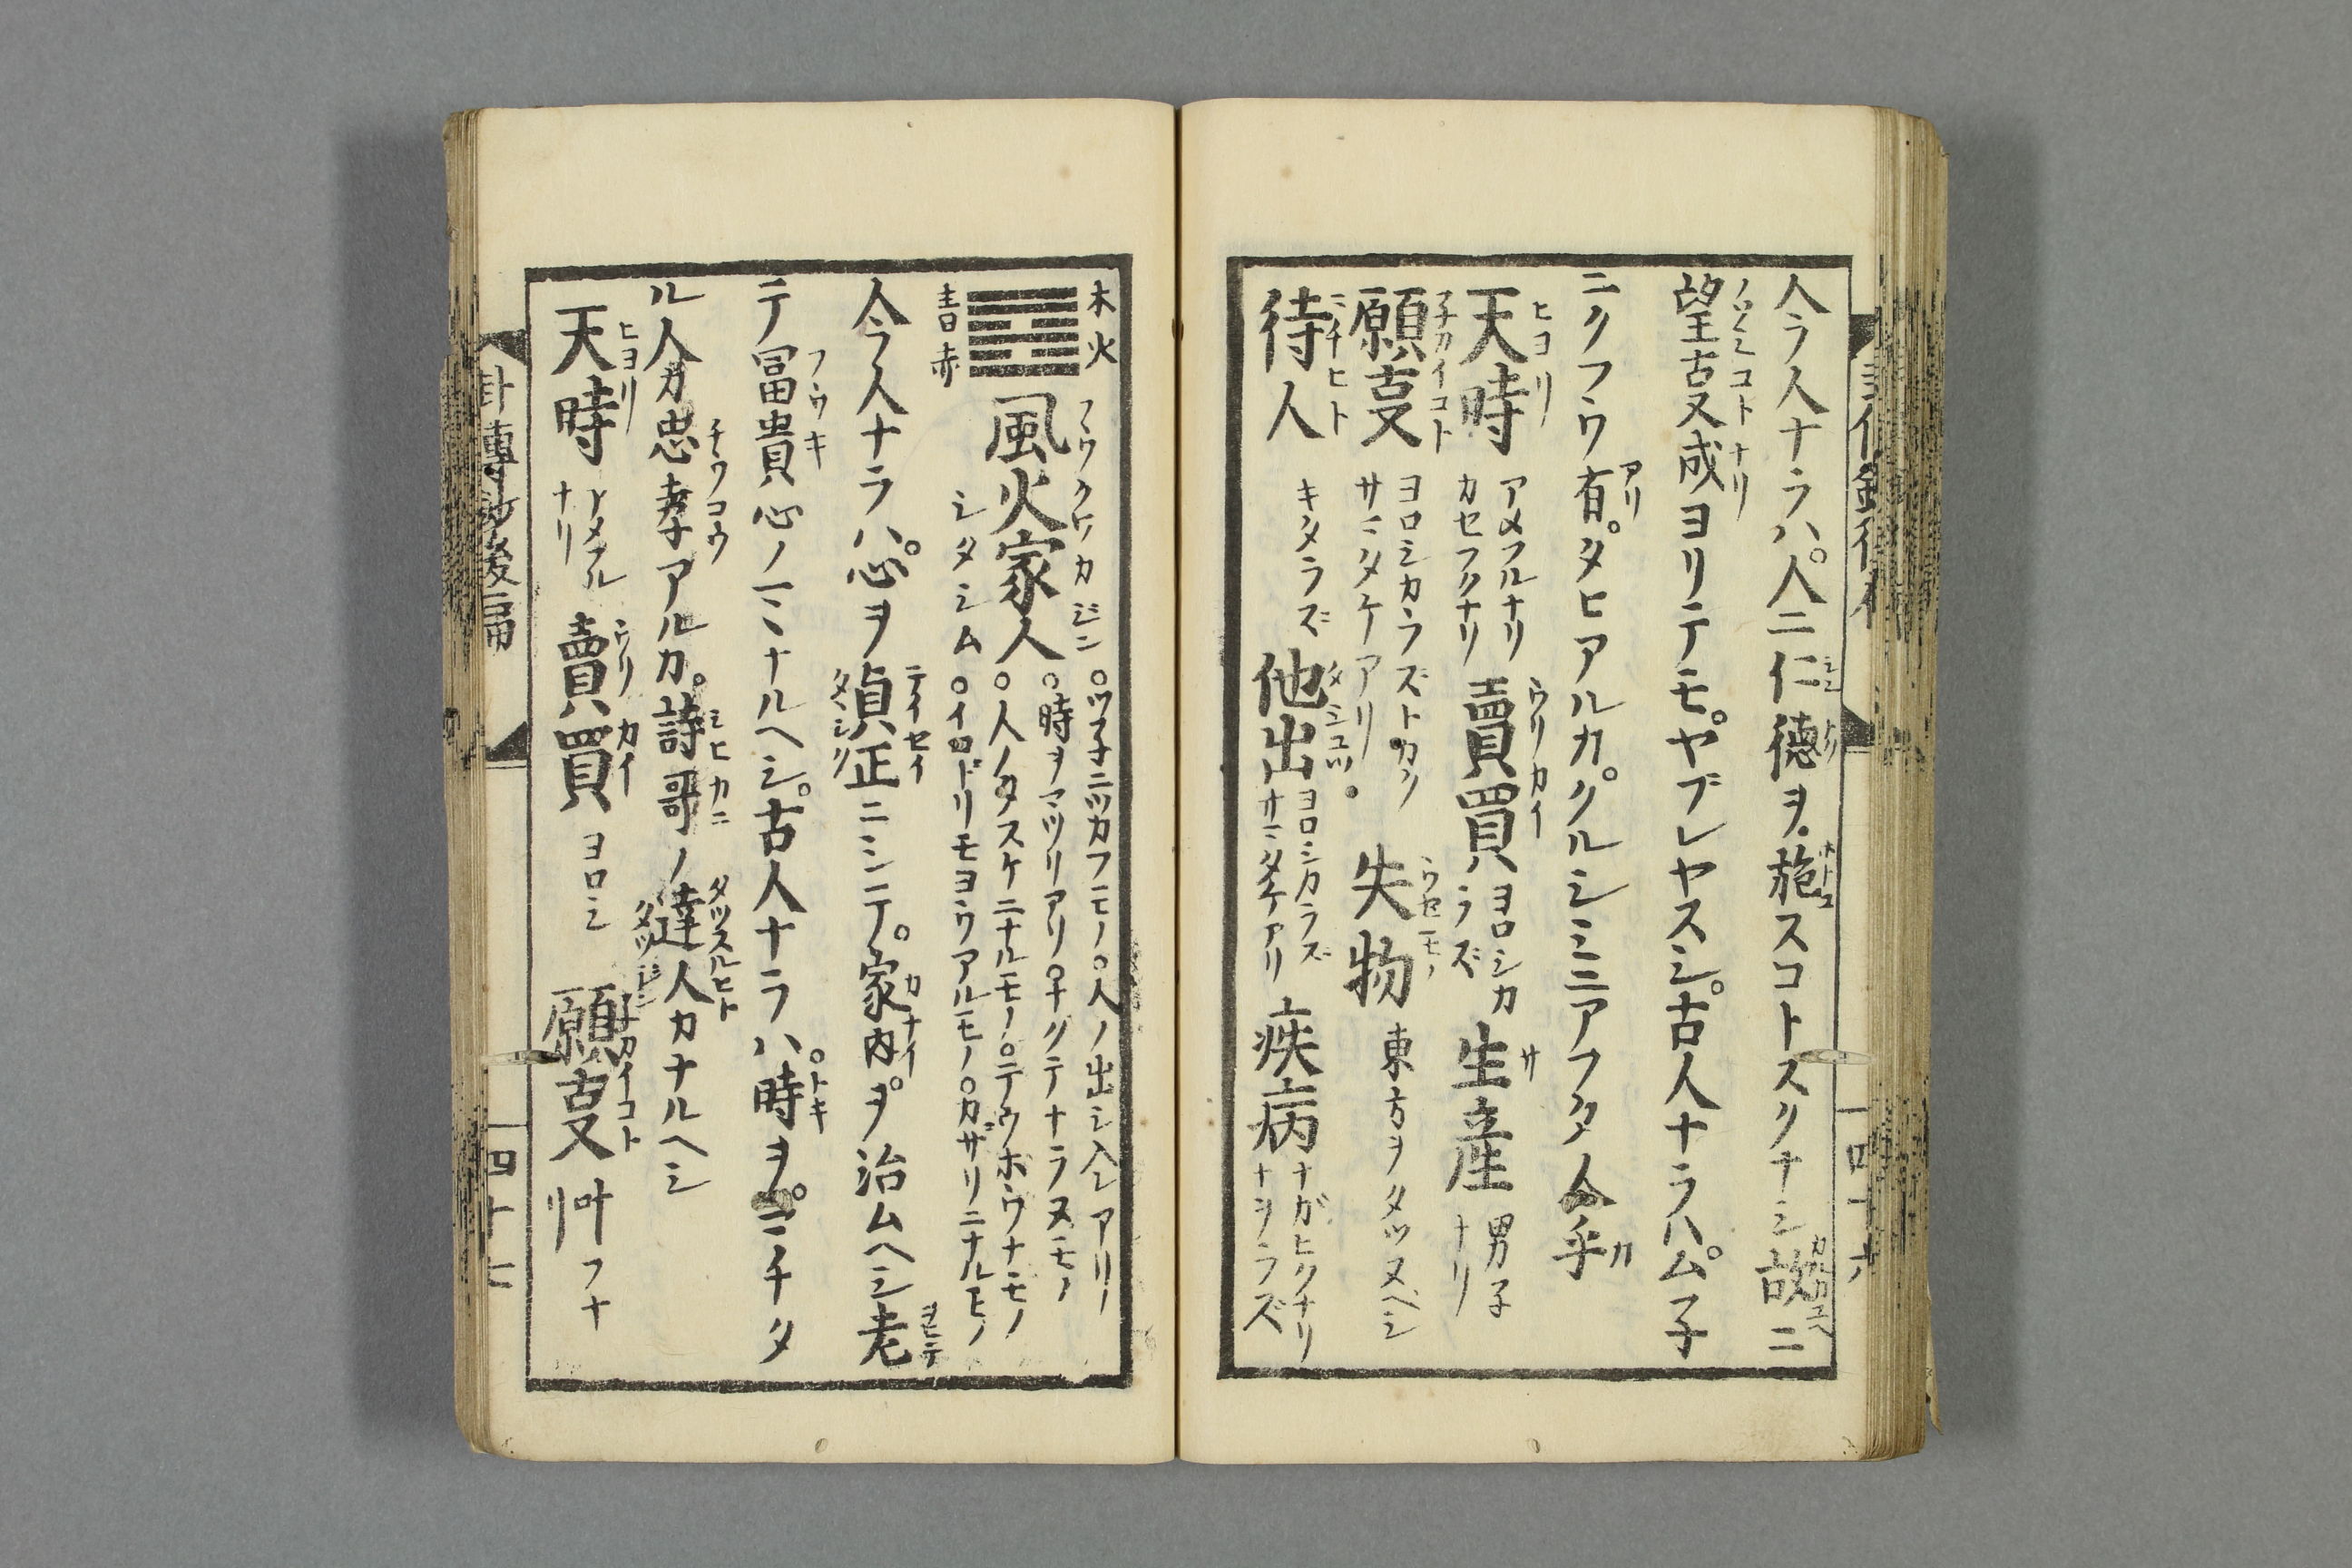 今ラ人ナラハ。人ニ仁德ヲ施スコトスクナシ故ニ
望叓成ヨリテモ。ヤブレヤスシ。古人ナラハ。ム子
ニクフウ有。タヒアルカ。クルシミニアフタ人乎
天時 アメフルナリ カセフクナリ 賣買 ヨロシカラズ 生産 男子ナリ
願叓 ヨロシカラズトカク サマタケアリ 失物 東方ヲタツヌベシ
待人 キタラズ 他出 ヨロシカラズ サマタケアリ 疾病 ナガヒクナリ ナヲラズ
木火
青赤
風火家人 フウクハカジン
シタシム
○ツ子ニツカフモノ○人ノ出シ入レアリ
○時ヲマツリアリ○早クテナラヌモノ
○人ノタスケニナルモノ○テウホウナモノ
○イロドリモヨウアルモノ○カザリニナルモノ
今ラ人ナラハ。心ヲ貞正ニシテ。家内ヲ。治ムヘシ老
テ冨貴心ノマヽナルヘシ。古人ナラハ。時ヲ。ミチタ
ル人カ忠孝アルカ。詩哥ノ達人カナルヘシ
天時 アメフルナリ 賣買 ヨロシ 願叓 叶フナリ
卦傳抄後扁
四十七